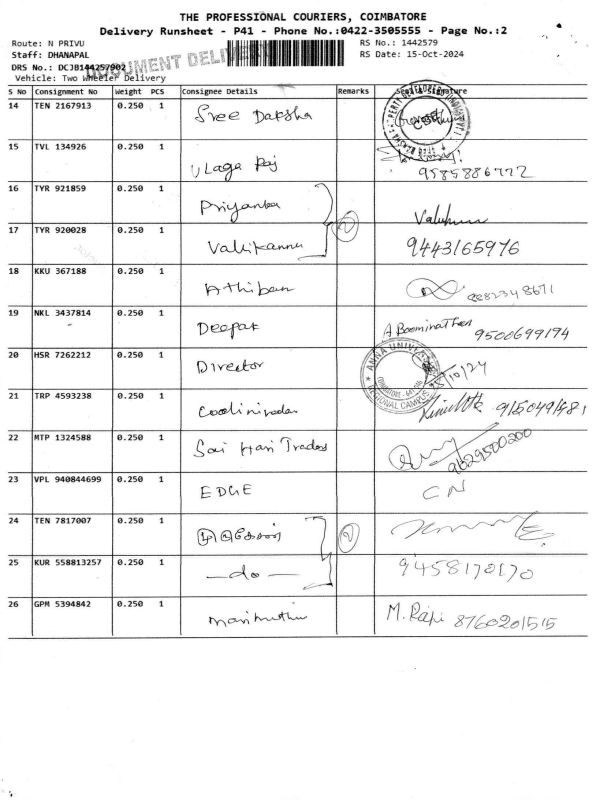 THE PROFESSIONAL COURIERS, COIMBATORE
Delivery Runsheet - P41 - Phone No.:0422-3505555 - Page No.:2
Route: N PRIVU RS No.: 1442579
Staff: DHANAPAL RS Date: 15-Oct-2024
DRS No.: DCJB144257902
DOCUMENT DELIVE
Vehicle: Two Wheeler Delivery
S No Consignment No Weight PCS Consignee Details Remarks Seal & Signature
14 TEN 2167913 0.250 1 Sree Daksha
15 TVL 134926 0.250 1 Ulaga Raj 9585886772
16 TYR 921859 0.250 1 Priyanka
17 TYR 920028 0.250 1 Vallikannu 2 9443165976
18 KKU 367188 0.250 1 Athiban
19 NKL 3437814 0.250 1 Deepak A Boominathan 9500699174
20 HSR 7262212 0.250 1 Director ANNA UNIVERSITY REGIONAL CAMPUS 15/10/24
21 TRP 4593238 0.250 1
22 MTP 1324588 0.250 1 Sai Hari Traders 9629500200
23 VPL 940844699 0.250 1 EDGE CN
24 TEN 7817007 0.250 1 2
25 KUR 558813257 0.250 1 —do— 9458170170
26 GPM 5394842 0.250 1 Marimuthu M. Raji 8760201515